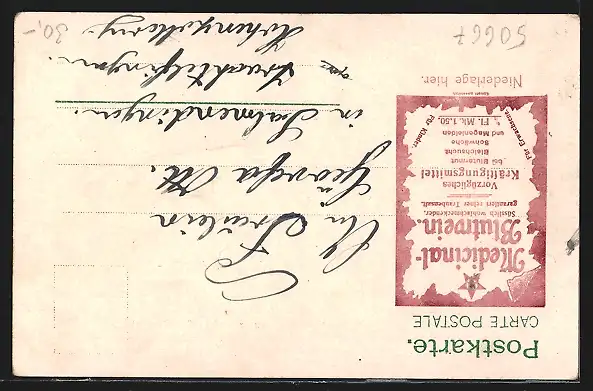 Postkarte.
CARTE POSTALE
Medicinal-
Blutwein.
Süsslich wohlschmeckender,
garantiert reiner Traubensaft.
Vorzügliches
Kräftigungsmittel
bei Blutarmut
Bleichsucht
Schwäche
und Magenleiden
Für Erwachsene
Für Kinder.
½ Fl. Mk. 1.50.
Niederlage hier.
An Fräulein
Georgia Ott.
in
Salmendingen.
Post Trochtelfingen.
Hohenzollern.
50667
30,-